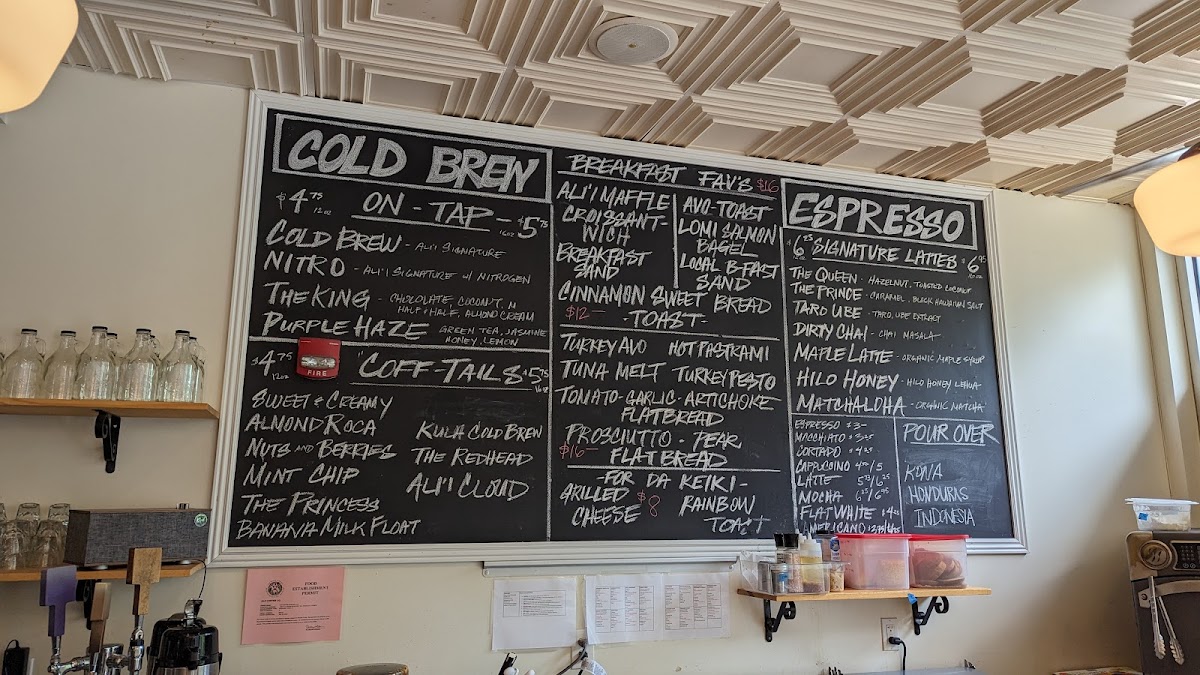 COLD BREW
$4.75 12oz ON-TAP - 16oz $5.75
COLD BREW - ALI'I SIGNATURE
NITRO - ALI'I SIGNATURE W/ NITROGEN
THE KING - CHOCOLATE, COCONUT, M
HALF & HALF, ALMOND CREAM
PURPLE HAZE GREEN TEA, JASMINE
HONEY, LEMON
FIRE
$4.75 12oz "COFF-TAILS $5.75 16oz
SWEET & CREAMY
ALMOND ROCA
NUTS AND BERRIES
MINT CHIP
THE PRINCESS
BANANA MILK FLOAT
KULA COLD BREW
THE REDHEAD
ALI'I CLOUD
BREAKFAST FAV'S $16
ALI'I MAFFLE
CROISSANT-
WICH
BREAKFAST
SAND
AVO-TOAST
LOMI SALMON
BAGEL
LOCAL B-FAST
SAND
CINNAMON SWEET BREAD
$12- -TOAST-
TURKEY AVO HOT PASTRAMI
TUNA MELT TURKEY PESTO
TOMATO-GARLIC-ARTICHOKE
FLATBREAD
PROSCIUTTO - PEAR
$16- FLATBREAD
-FOR DA KEIKI-
GRILLED
CHEESE
$8
RAINBOW
TOAST
ESPRESSO
SIGNATURE LATTES $6.95
THE QUEEN - HAZELNUT, TOASTED COCONUT
THE PRINCE - CARAMEL, BLACK HAWAIIAN SALT
TARO UBE - TARO, UBE EXTRACT
DIRTY CHAI - CHAI MASALA
MAPLE LATTE - ORGANIC MAPLE SYRUP
HILO HONEY - HILO HONEY LEHUA
MATCHALOHA - ORGANIC MATCHA
ESPRESSO $3-
MACCHIATO $3.25
CORTADO $4.25
CAPPUCCINO
LATTE
MOCHA
FLAT WHITE
AMERICANO
POUR OVER
KONA
HONDURAS
INDONESIA
FOOD
ESTABLISHMENT
PERMIT